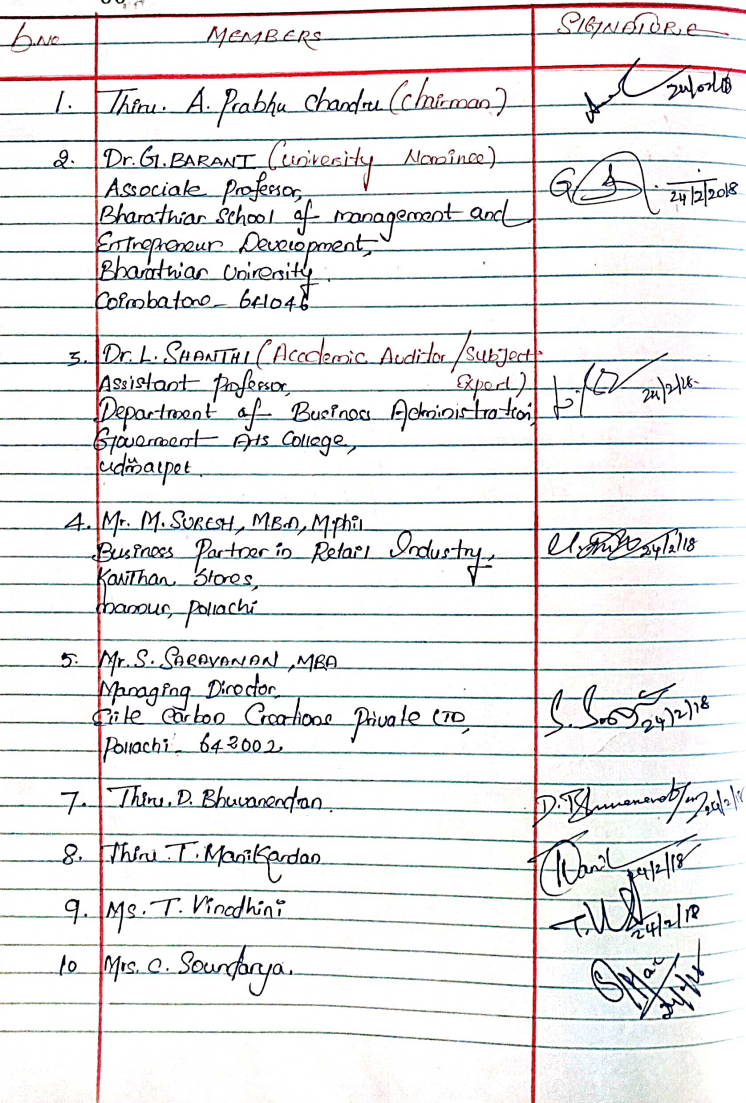 S.No MEMBERS SIGNATURE
1. Thiru. A. Prabhu Chandru (Chairman)
2. Dr. G. BARANI (University Nominee) 24/2/2018
Associate Professor,
Bharathiar School of management and
Entrepreneur Development,
Bharathiar University
Coimbatore - 641046
3. Dr. L. SHANTHI (Academic Auditor / Subject
Assistant Professor, Expert) 24/2/18.
Department of Business Administration,
Government Arts College,
4. Mr. M. SURESH, MBA, Mphil
Business Partner in Retail Industry, 24/2/18
Stores,
Pollachi
5. Mr. S. SARAVANAN, MBA
Managing Director,
Carbon Creations Private LTD, S. 24/2/18
Pollachi - 642002
7. Thiru. D. Bhuvanendran. D. 24/2/18
8. Thiru T. Manikandan 24/2/18
9. Ms. T. Vinodhini 24/2/18
10 Mrs. C. Soundarya.